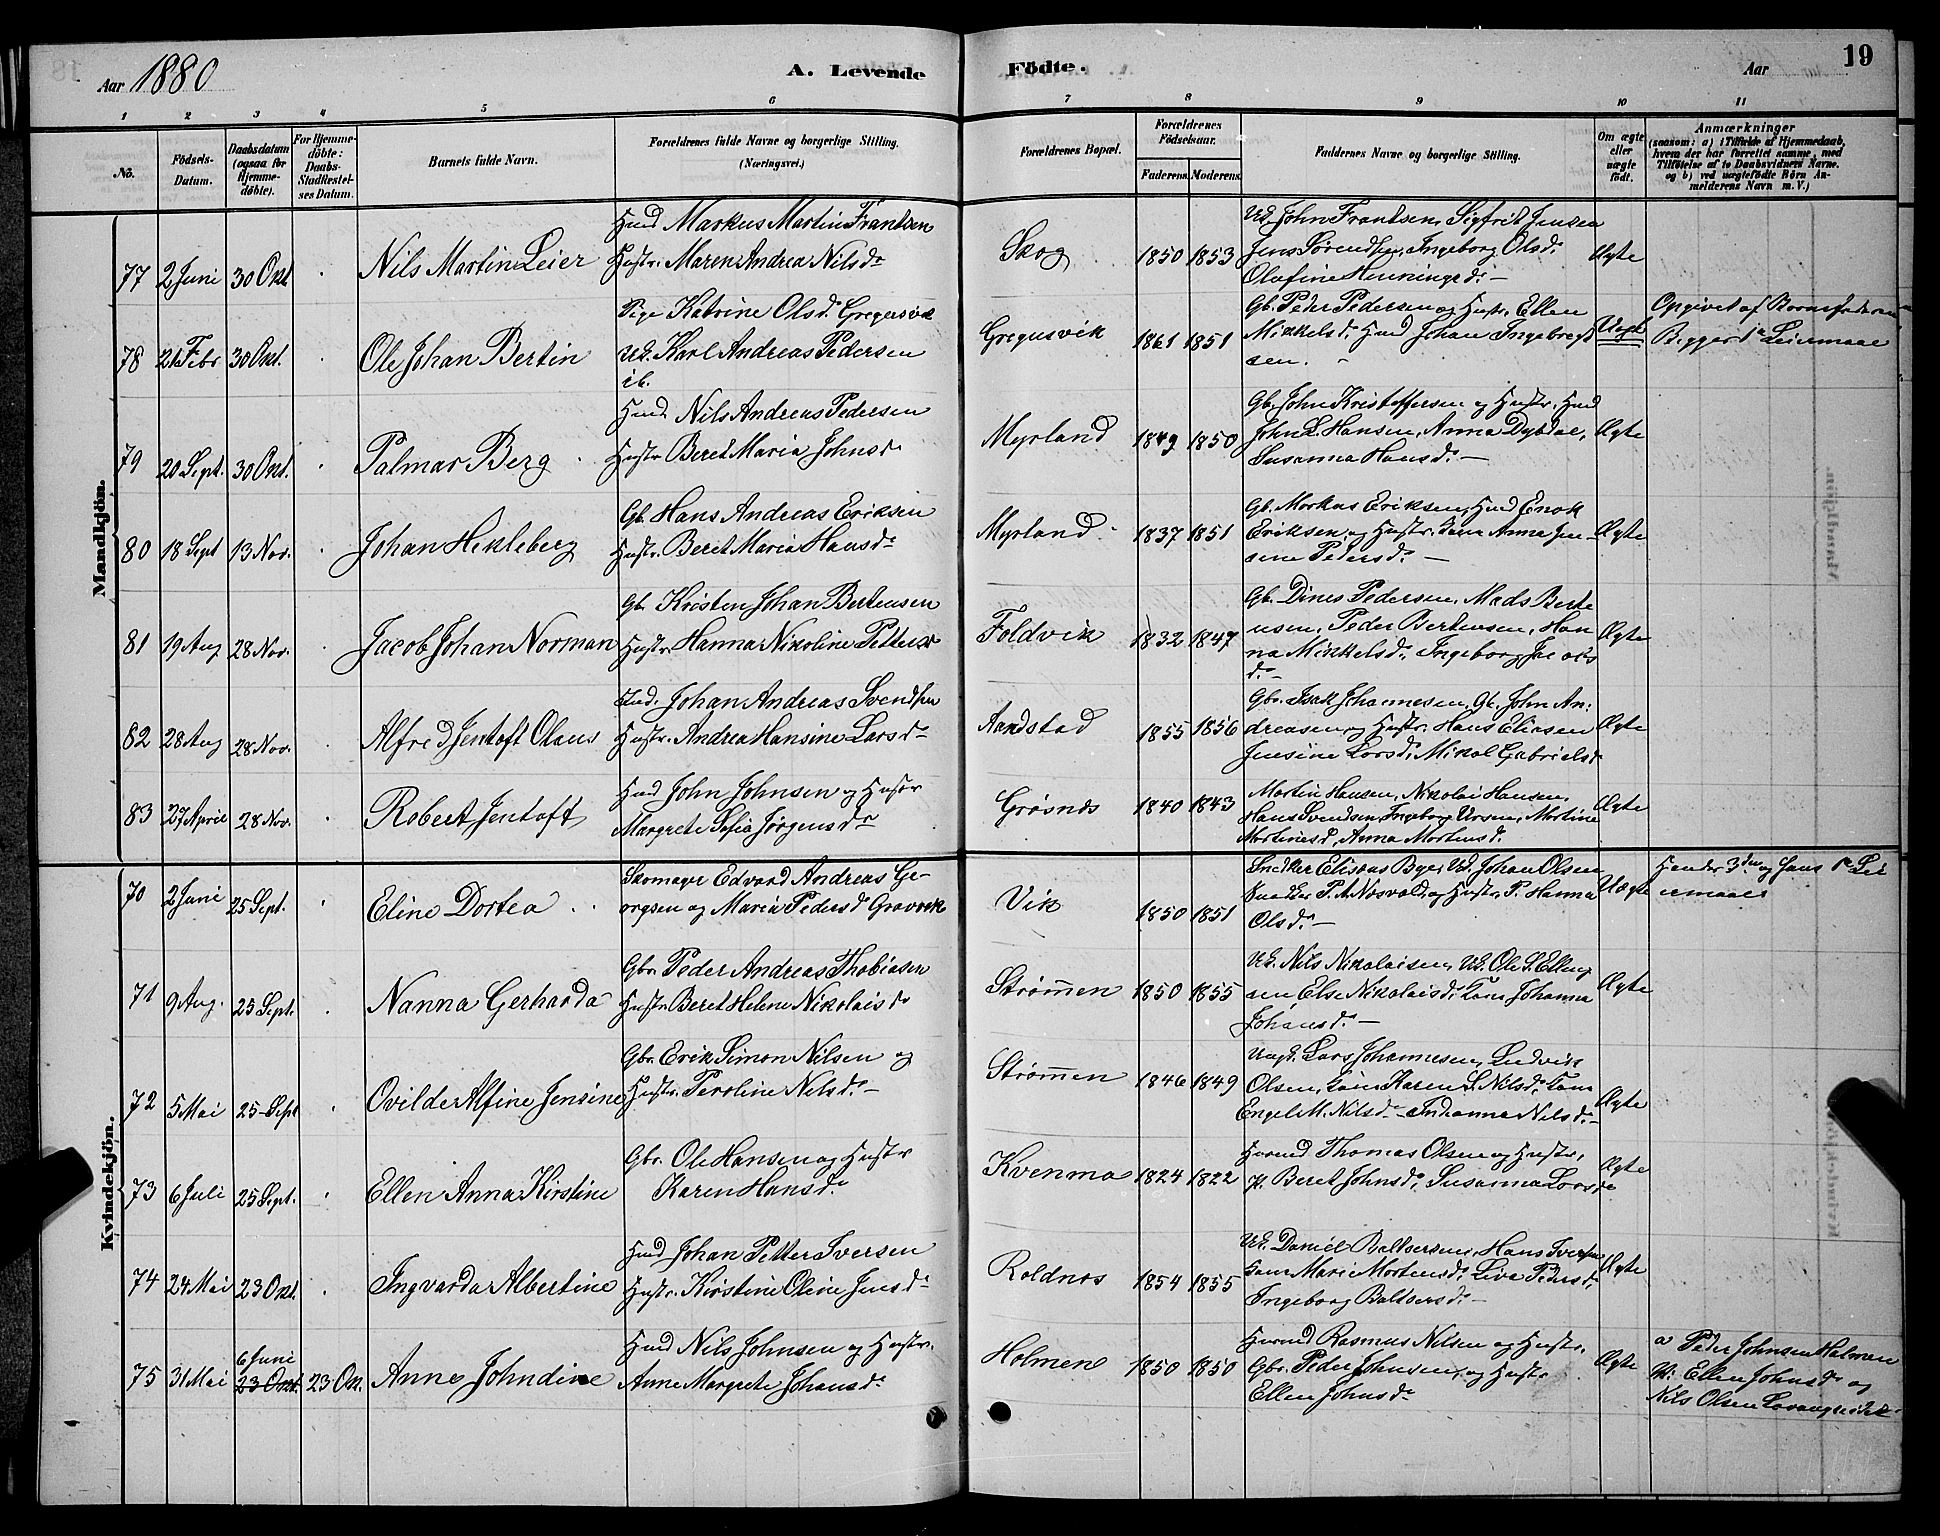 Aar 1880
A. Levende Födte.
Aar
19
1 2 3 4 5 6 7 8 9 10 11
No.
Födsels-Datum.
Daabsdatum (ogsaa for Hjemmedöbte).
For Hjemmedöbte: Daabs Stadfestelses Datum.
Barnets fulde Navn.
Forældrenes fulde Navne og borgerlige Stilling. (Næringsvei.)
Forældrenes Bopæl.
Forældrenes Födselsaar.
Faderens. Moderens.
Faddernes Navne og borgerlige Stilling.
Om ægte eller uægte födt.
Anmærkninger (saasom: a) i Tilfælde af Hjemmedaab, hvem der har forrettet samme, med Tilföielse af to Daabsvidners Navne, og b) ved uægtefödte Börn Anmelderens Navn m. V.)
Mandkjön.
77 2 Juni 30 Okt Nils Martin Leier
Hmd Markus Martin Frantsen
Hustr. Maren Andrea Nilsdr
Skog 1850 1853
Ud. John Frantsen, Sigfrit Jensen
Jens Sørendsen, Ingeborg Olsdr.
Olufine Henningsdr. —
Ægte
78 21 Febr 30 Okt. Ole Johan Bertin
Pige Katrine Olsdr. Gregusvik
Ud. Karl Andreas Pedersen
ib.
Gregusvik 1861 1851
Gb. Peder Pedersen og Hustr. Ellen
Mikkelsdr, Hmd Johan Ingebrigt
sen. —
Uægt
Opgivet af Barnefaderen
Begges 1ste Leiermaal
79 20 Sept. 30 Okt. Palmar Berg
Hmd. Nils Andreas Pedersen
Hustr Beret Maria Johnsdr
Myrland 1849 1850
Gb. John Kristoffersen og Hustr, Hmd
John L. Hansen, Anna Dybdal,
Susanna Hansdr. —
Ægte
80 18 Sept 13 Nov. Johan Hekleberg
Gb. Hans Andreas Eriksen
Hustr. Beret Maria Hansdr
Myrland 1837 1851
Gb. Markus Eriksen, Hmd Enok
Eriksen og Hustr. Anna Jen-
sine Pedersdr. —
Ægte
81 19 Aug 28 Nov. Jacob Johan Norman
Gb. Kristen Johan Berteusen
Hustr. Hanna Nikoline Pettersdr
Foldvik 1832 1847
Gb. Dines Pedersen, Mads Berte
usen, Peder Berteusen, Han
na Mikkelsdr, Ingeborg Jacobs
dr. —
Ægte
82 28 Aug 28 Nov. Alfred Jentoft Olaus
Hmd. Johan Andreas Svendsen
Hustr. Andrea Hansine Larsdr
Aandstad 1855 1856
Gbr. Isak Johannesen, Gb. John An-
dreasen og Hustr. Hans Eliasen
Jensine Larsdr, Mikal Gabrielsdr
Ægte
83 27 April 28 Nov. Robert Jentoft
Hmd John Johnsen og Hustr
Margrete Sofia Jørgensdr
Grøsnes 1840 1843
Martin Hansen, Nikolai Hansen,
Hans Svendsen, Ingeborg Ursen, Martine
Martinesd, Anna Mortensd.
Ægte
Kvindekjön.
70 2 Juni 25 Sept. Eline Dortea
Skomager Edvard Andreas Ge-
orgsen og Maria Pedersd Gravvik
Vik 1850 1851
Snedker Elisæus Bye, Ud. Johan Olsen
Snedker P. A. Nosvold og Hustr, P. Hanna
Olsdr. —
Uægte
Hendes 3die og Hans 1ste Lei
ermaal
71 9 Aug. 25 Sept. Nanna Gerharda
Gbr. Peder Andreas Thobiasen
Hustr. Beret Helene Nikolaisdr
Strømmen 1850 1855
Ud. Nils Nikolaisen, Ud. Ole S. Elling
sen, Else Nikolaisdr, Johanna
Johansdr. —
Ægte
72 5 Mai 25 Sept Ovilde Alfine Jensine
Gbr. Erik Simon Nilsen og
Hustr. Peroline Nilsdr. —
Strømmen 1846 1849
Lars Johannesen, Ludvik
Olsen, Karen S. Nilsdr,
Engel M. Nilsdr. Indianna Nilsdr. —
Ægte
73 6 Juli 25 Sept. Ellen Anna Kirstine
Gbr. Ole Hansen og Hustr
Karen Hansdr.
Kvenmo 1824 1822
Husmd Thomas Olsen og Hustr,
P. Beret Johnsdr, Susanna Larsdr
Ægte
74 24 Mai 23 Okt. Ingvarda Albertine
Hmd Johan Petter Iversen
Hustr. Kirstine Oline Jensdr
Roldnes 1854 1855
Ud. Daniel Baltsersen, Hans Iversen
Marie Mortensdr, Liva Pedersdr,
Ingeborg Baltsersdr. —
Ægte
75 31 Mai 6 Juni 23 Okt. 23 Ok. Anne Johndine
Hmd Nils Johnsen og Hustr.
Anne Margrete Johansdr
Holmene 1850 1850
Husmd Rasmus Nilsen og Hustr,
Gbr. Peder Johnsen og Hustr
Ellen Johnsdr
Ægte
a Peder Johnsen Holmen
V: Ellen Johnsdr og
Nils Olsen Lavangseidet